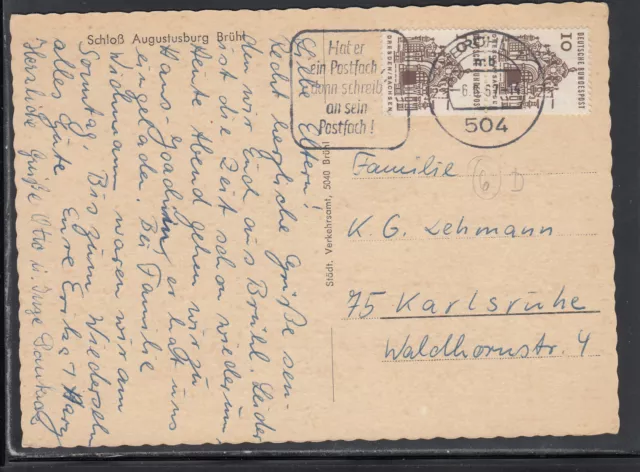 Schloß Augustusburg Brühl
Liebe Eltern!
Recht herzliche Grüße sen-
den wir Euch aus Brühl. Leider
ist die Zeit schon wieder um,
Heute Abend gehen wir zu
Hans-Joachim, er hat uns
eingeladen. Bei Familie
Wichmann waren wir am
Sonntag. Bis zum Wiedersehn
alles Gute Eure Erika +
Herzliche Grüße Otto u. Inge
Städt. Verkehrsamt, 5040 Brühl
Hat er
ein Postfach,
dann schreib
an sein
Postfach!
504
10
DEUTSCHE BUNDESPOST
Familie
6 D
K. G. Lehmann
75 Karlsruhe
Waldhornstr. 4